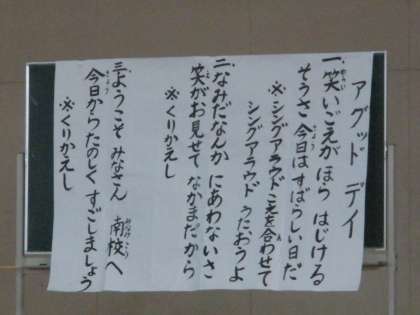 アグッド デイ
一、笑いごえが ほら はじける
そうさ 今日は すばらしい日だ
きょう
※シングアラウド こえを合わせて
シングアラウド うたおうよ
二、なみだなんか にあわないさ
笑がお見せて なかまだから
※くりかえし
三、ようこそ みなさん 南校へ
今日から たのしく すごしましょう
きょう
※くりかえし